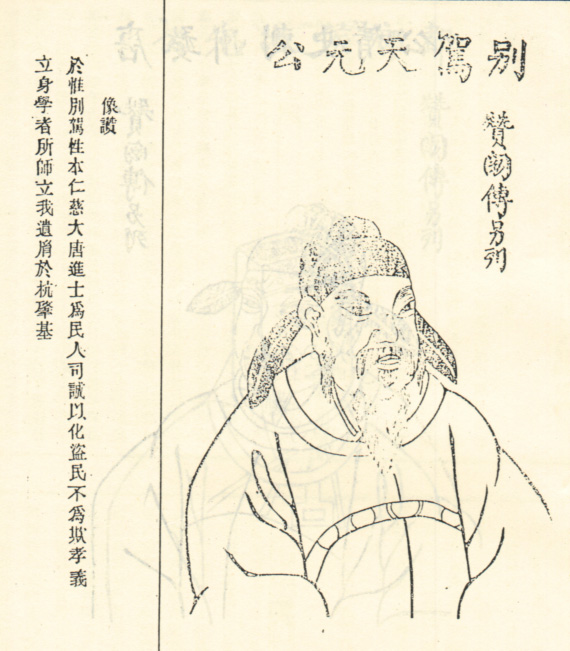 別駕天元公
贊闕傳另列
像讚
於惟別駕性本仁慈大唐進士爲民人司誠以化盜民不爲欺孝義
立身學者所師立我遺肩於杭肇基